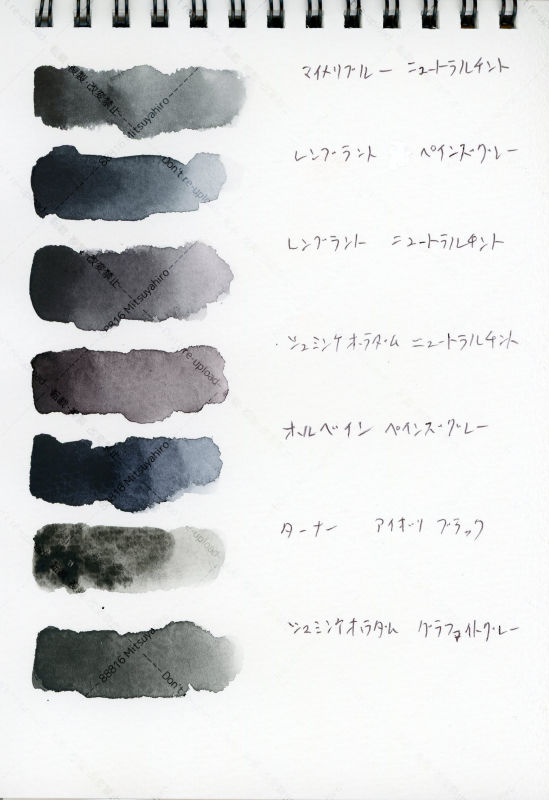 マイメリブルー ニュートラルチント
レンブラント ペインズグレー
レンブラント ニュートラルチント
シュミンケホラダム ニュートラルチント
ホルベイン ペインズグレー
ターナー アイボリ ブラック
シュミンケホラダム グラファイトグレー
複製・改変禁止
88816 Mitsuyahiro
Don't re-upload